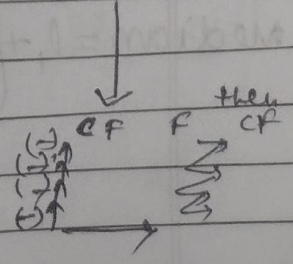 then
CF F CF
(-)
(-)
(-)
(-)